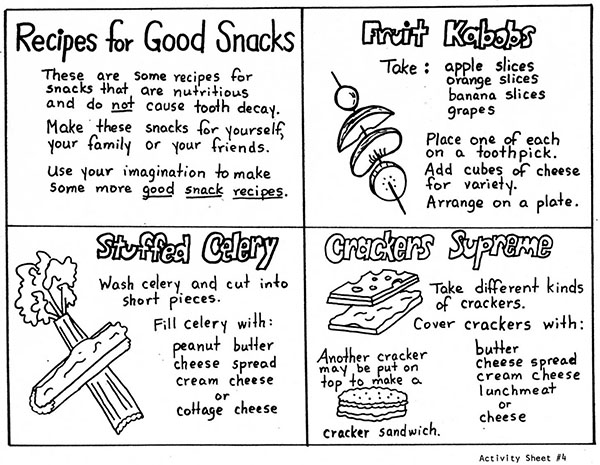 Recipes for Good Snacks
These are some recipes for
snacks that are nutritious
and do not cause tooth decay.
Make these snacks for yourself,
your family or your friends.
Use your imagination to make
some more good snack recipes.
Fruit Kabobs
Take: apple slices
orange slices
banana slices
grapes
Place one of each
on a toothpick.
Add cubes of cheese
for variety.
Arrange on a plate.
Stuffed Celery
Wash celery and cut into
short pieces.
Fill celery with:
peanut butter
cheese spread
cream cheese
or
cottage cheese
Crackers Supreme
Take different kinds
of crackers.
Cover crackers with:
butter
cheese spread
cream cheese
lunchmeat
or
cheese
Another cracker
may be put on
top to make a
cracker sandwich.
Activity Sheet #4